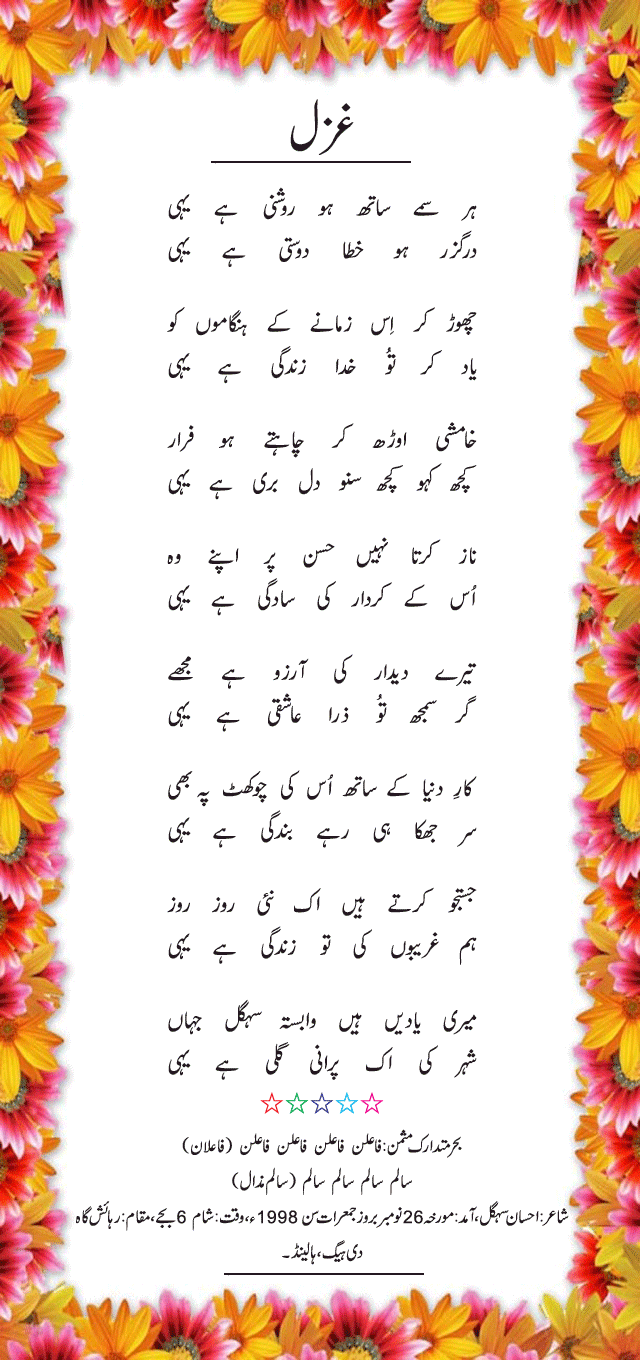 غزل
ہر سمے ساتھ ہو روشنی ہے یہی
درگزر ہو خطا دوستی ہے یہی
چھوڑ کر اِس زمانے کے ہنگاموں کو
یاد کر توُ خدا زندگی ہے یہی
خامشی اوڑھ کر چاہتے ہو فرار
کچھ کہو کچھ سنو دل بری ہے یہی
ناز کرتا نہیں حسن پر اپنے وہ
اُس کے کردار کی سادگی ہے یہی
تیرے دیدار کی آرزو ہے مجھے
گر سمجھ توُ ذرا عاشقی ہے یہی
کارِ دنیا کے ساتھ اُس کی چوکھٹ پہ بھی
سر جھکا ہی رہے بندگی ہے یہی
جستجو کرتے ہیں اک نئی روز روز
ہم غریبوں کی تو زندگی ہے یہی
میری یادیں ہیں وابستہ سہگل جہاں
شہر کی اک پرانی گلی ہے یہی
بحرمتدارک مثمن: فاعلن فاعلن فاعلن فاعلن (فاعلان)
سالم سالم سالم سالم (سالم مذال)
شاعر: احسان سہگل، آمد: مورخہ 26 نومبر بروز جمعرات سن 1998ء، وقت: شام 6 بجے، مقام: رہائش گاہ
دی ہیگ، ہالینڈ۔